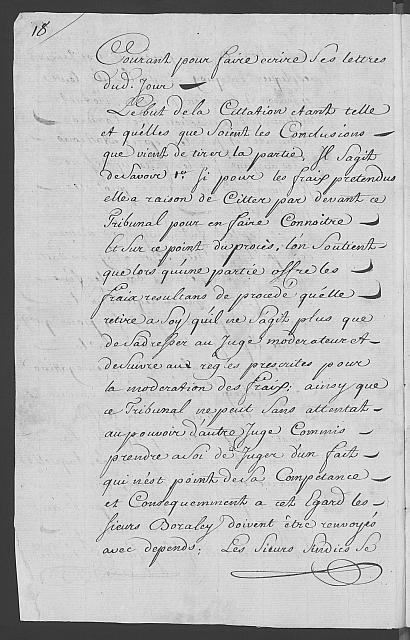 18
Courant pour faire ecrire ses lettres
dud. Jour
Le but de la Cittation etant telle
et quelles que soient les Conclusions
que vient de tirer la partie. Il sagit
de savoir 1º si pour les fraix pretendus
elle a raison de Citter par devant ce
Tribunal pour en faire Connoitre
et sur ce point du procès, l'on soutient
que lors qu'une partie offre les
fraix resultans de procedé qu'elle
retire a soy qu'il ne sagit plus que
de sadresser au Juge moderateur et
de suivre aux regles prescrites pour
la moderation des fraix; ainsy que
ce Tribunal ne peut sans attentat
au pouvoir d'autre Juge Commis
prendre a soi de Juger d'un fait
qui n'est point de sa Competance
et Consequemment a cet Egard les
sieurs Boraley doivent être renvoyés
avec depends; Les sieurs Sindics se